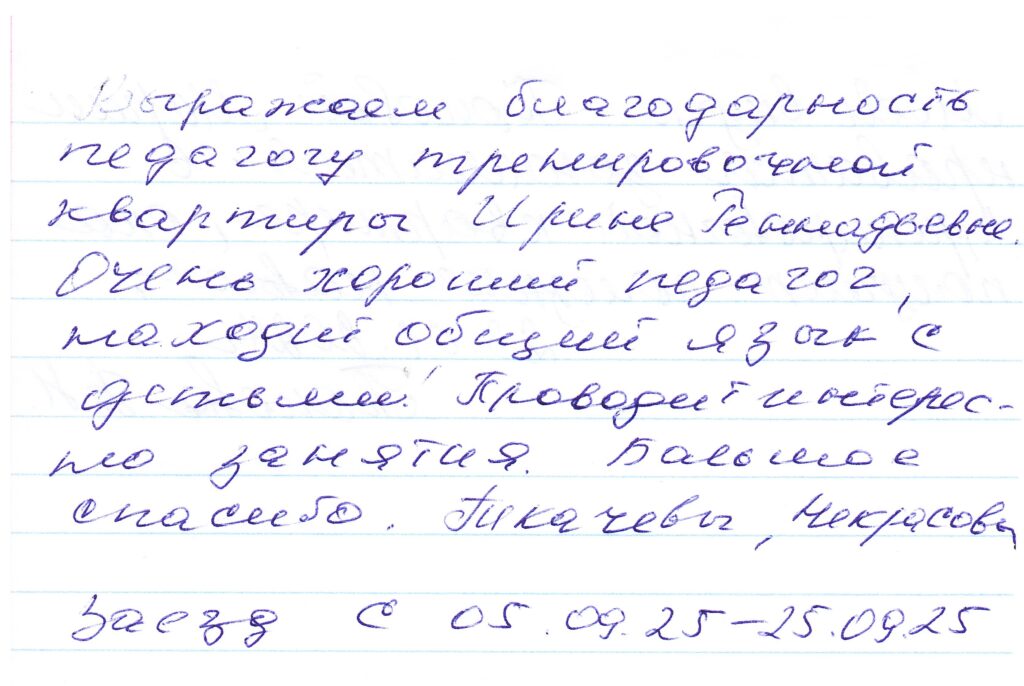 Выражаем благодарность
педагогу тренировочной
квартиры Ирине Геннадьевне.
Очень хороший педагог,
находит общий язык с
детьми. Проводит интерес-
но занятия. Большое
спасибо. Ткачевы, Некрасовы
Заезд с 05.09.25-25.09.25